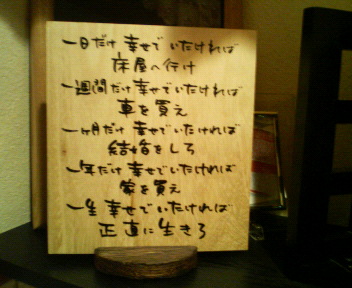 一日だけ 幸せでいたければ
床屋へ行け
一週間だけ 幸せでいたければ
車を買え
一ヶ月だけ 幸せでいたければ
結婚をしろ
一年だけ 幸せでいたければ
家を買え
一生 幸せでいたければ
正直に生きろ